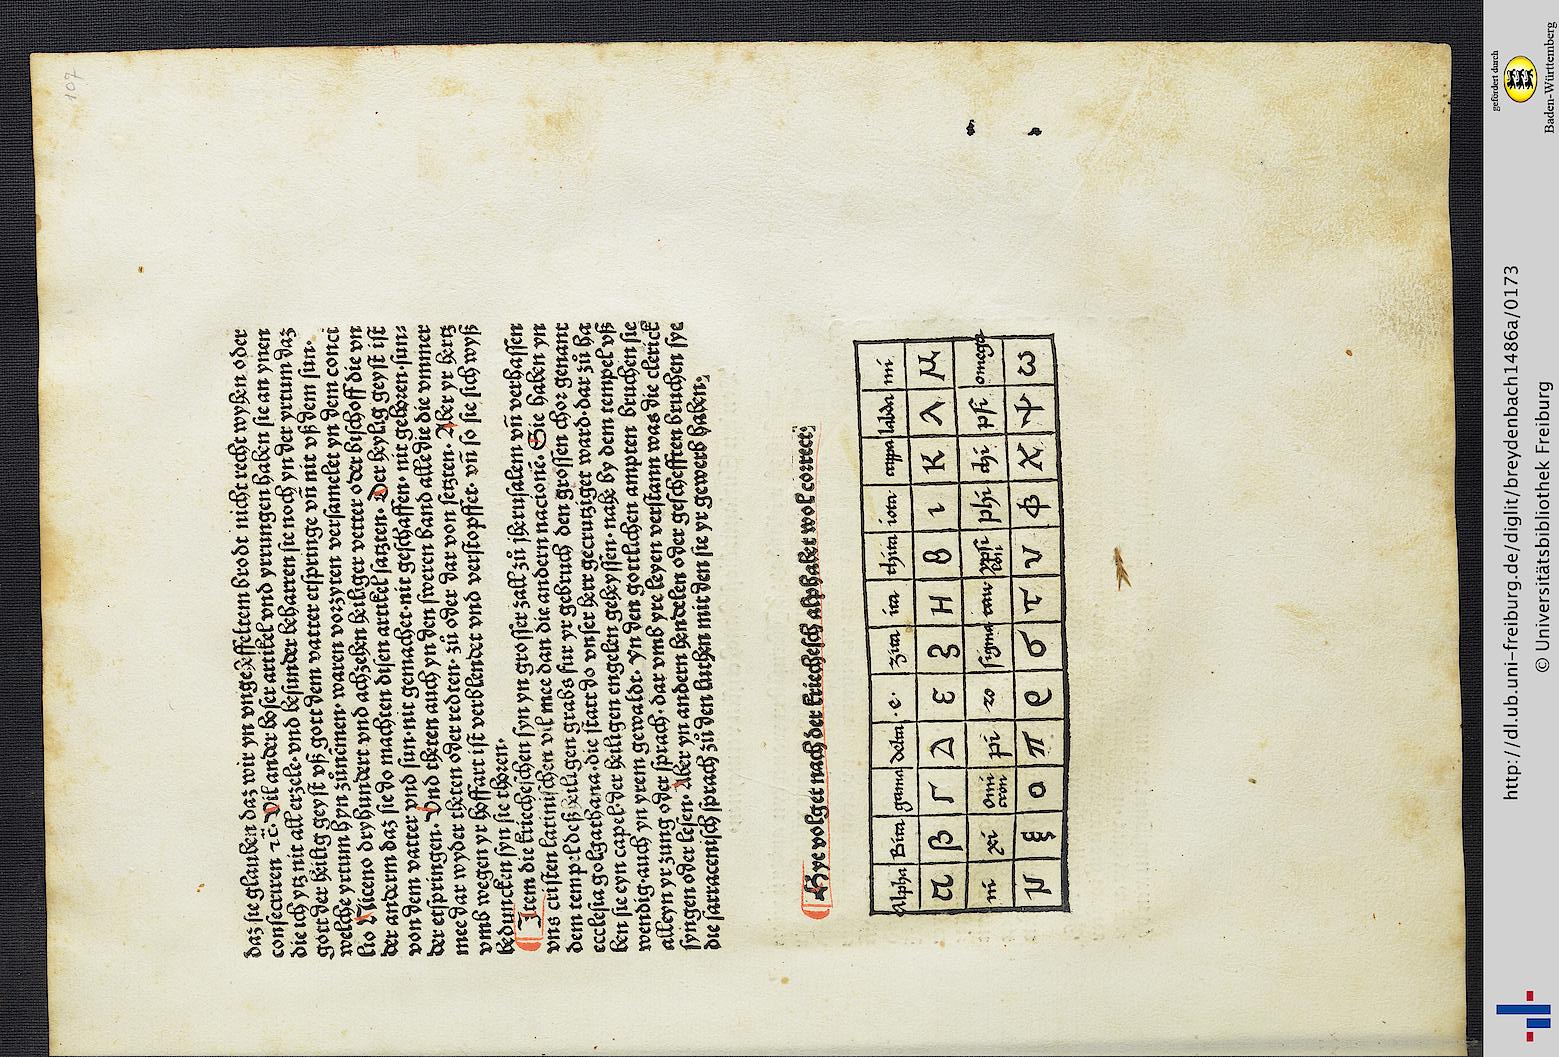 107
daz sie glauben daz wir yn vngeheffeltem brodt nicht recht wyhen oder
consecuren ⁊c̄ Vil ander boser artikel vnd yrrungen haben sie an ynen
die ich ytz nit all erzele· vnd besunder beharren sie noch yn der yrtum daz
gott der heilig geyst vß gott dem vatter erspringe vn̄ nit vß dem sun·
welche yrtum hyn zů nemen· waren vorzyten versamelet yn dem conci
lio Niceno dryhundert vnd achzehen heiliger vetter oder bischoff die vn
der anderm daz sie do machten disen artikel satzten· Der heylig geyst ist
von dem vatter vnd sun· nit gemachet· nit geschaffen· nit geboren· sun⸗
der erspringen· Vnd theten auch yn den sweren band alle die die ymmer
mee dar wyder theten oder redten· zů oder dar von setzten· Aber yr hertz
vmb wegen yr hoffart ist verblendet vnd verstopffet· vn̄ so sie sich wyß
beduncken syn sie thoren·
Item die kriecheschen syn yn grosser zall zů jherusalem vn̄ verhassen
vns cristen latinischen vil mee dan die andern nacione̅· Sie haben yn
dem tempel deß heiligen grabs fur yr gebruch den grossen chor genant
ecclesia golgathana· die statt do vnser herr gecrutziget ward· dar zů ha
ben sie eyn capel· der heiligen engelen geheyssen· nahe by dem tempel vß
wendig· auch yn yrem gewaldt· Yn den gottlichen ampten bruchen sie
alleyn yr zung oder sprach· dar vmb yre leyen verstann was die clerick
syngen oder lesen· Aber yn andern hendelen oder geschefften bruchen sye
die sarracenisch sprach zů den luthen mit den sie yr gewerb haben·
Hye volget nach der kriechesch alphabet wol correct;
Alpha Bita gama delta ·e· zita ita thita iota cappa labda mi
α β Γ Δ ε ʒ H ϑ ι κ λ μ
ni xi omi cron pi ro sigma tau ypsi phi chi psi omega
ν ξ ο π ρ σ τ υ ϕ χ ψ ω
gefördert durch
Baden-Württemberg
http://dl.ub.uni-freiburg.de/diglit/breydenbach1486a/0173
© Universitätsbibliothek Freiburg